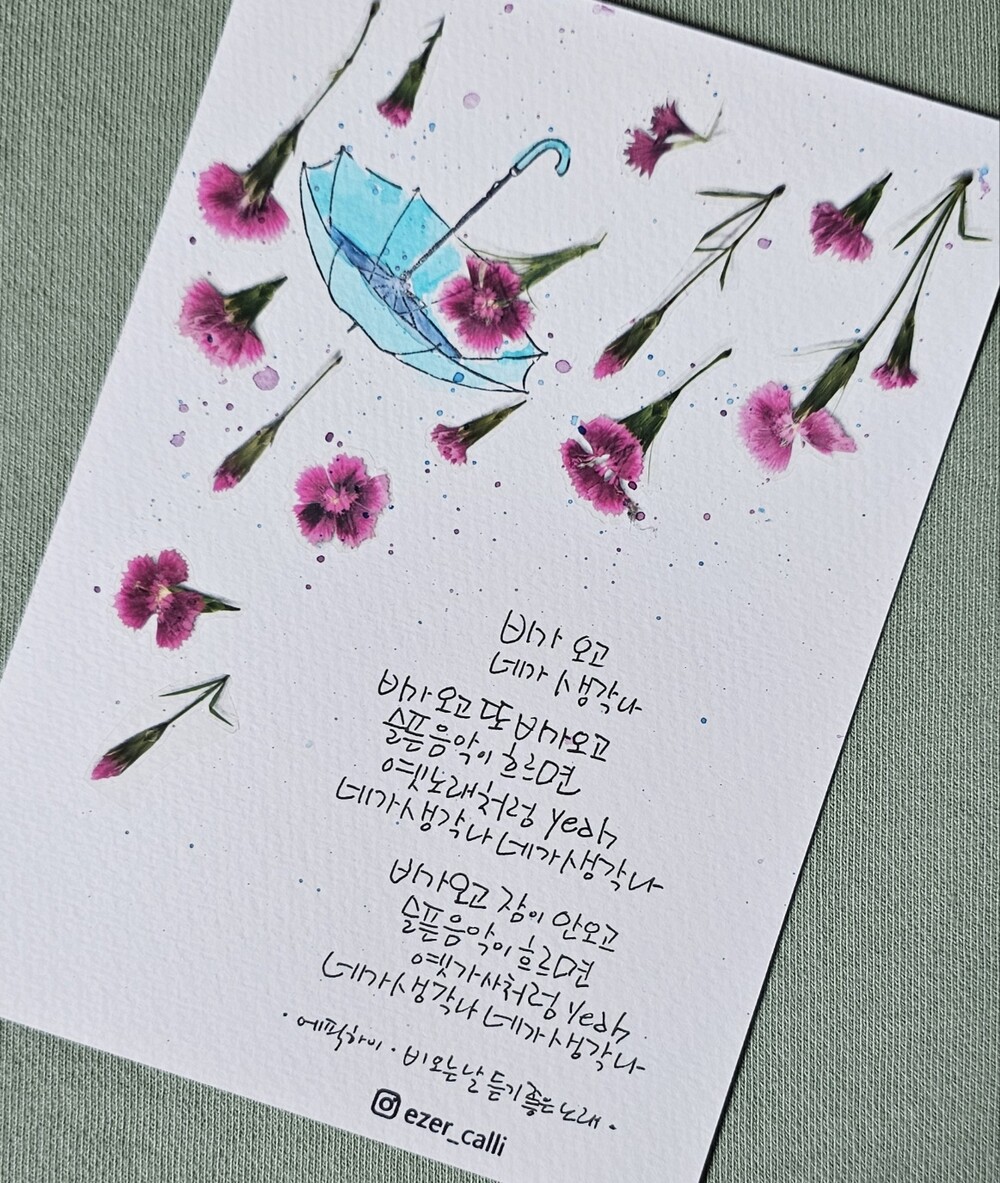 비가 오고
네가 생각나
비가 오고 또 비가 오고
슬픈 음악이 흐르면
옛노래처럼 yeah
네가 생각나 네가 생각나
비가 오고 잠이 안오고
슬픈 음악이 흐르면
옛가사처럼 yeah
네가 생각나 네가 생각나
· 에픽하이 · 비오는날 듣기 좋은 노래 ·
ezer_calli